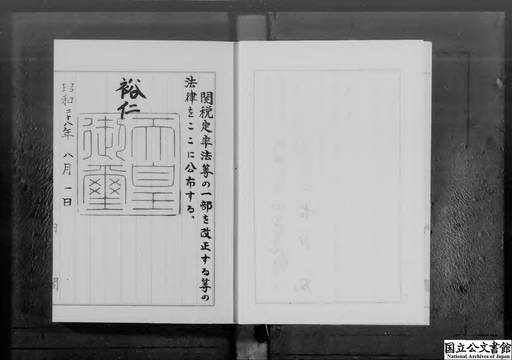 関税定率法等の一部を改正する等の
法律をここに公布する。
裕仁
天皇
御璽
昭和二十八年 八月 一日
内閣
国立公文書館
National Archives of Japan